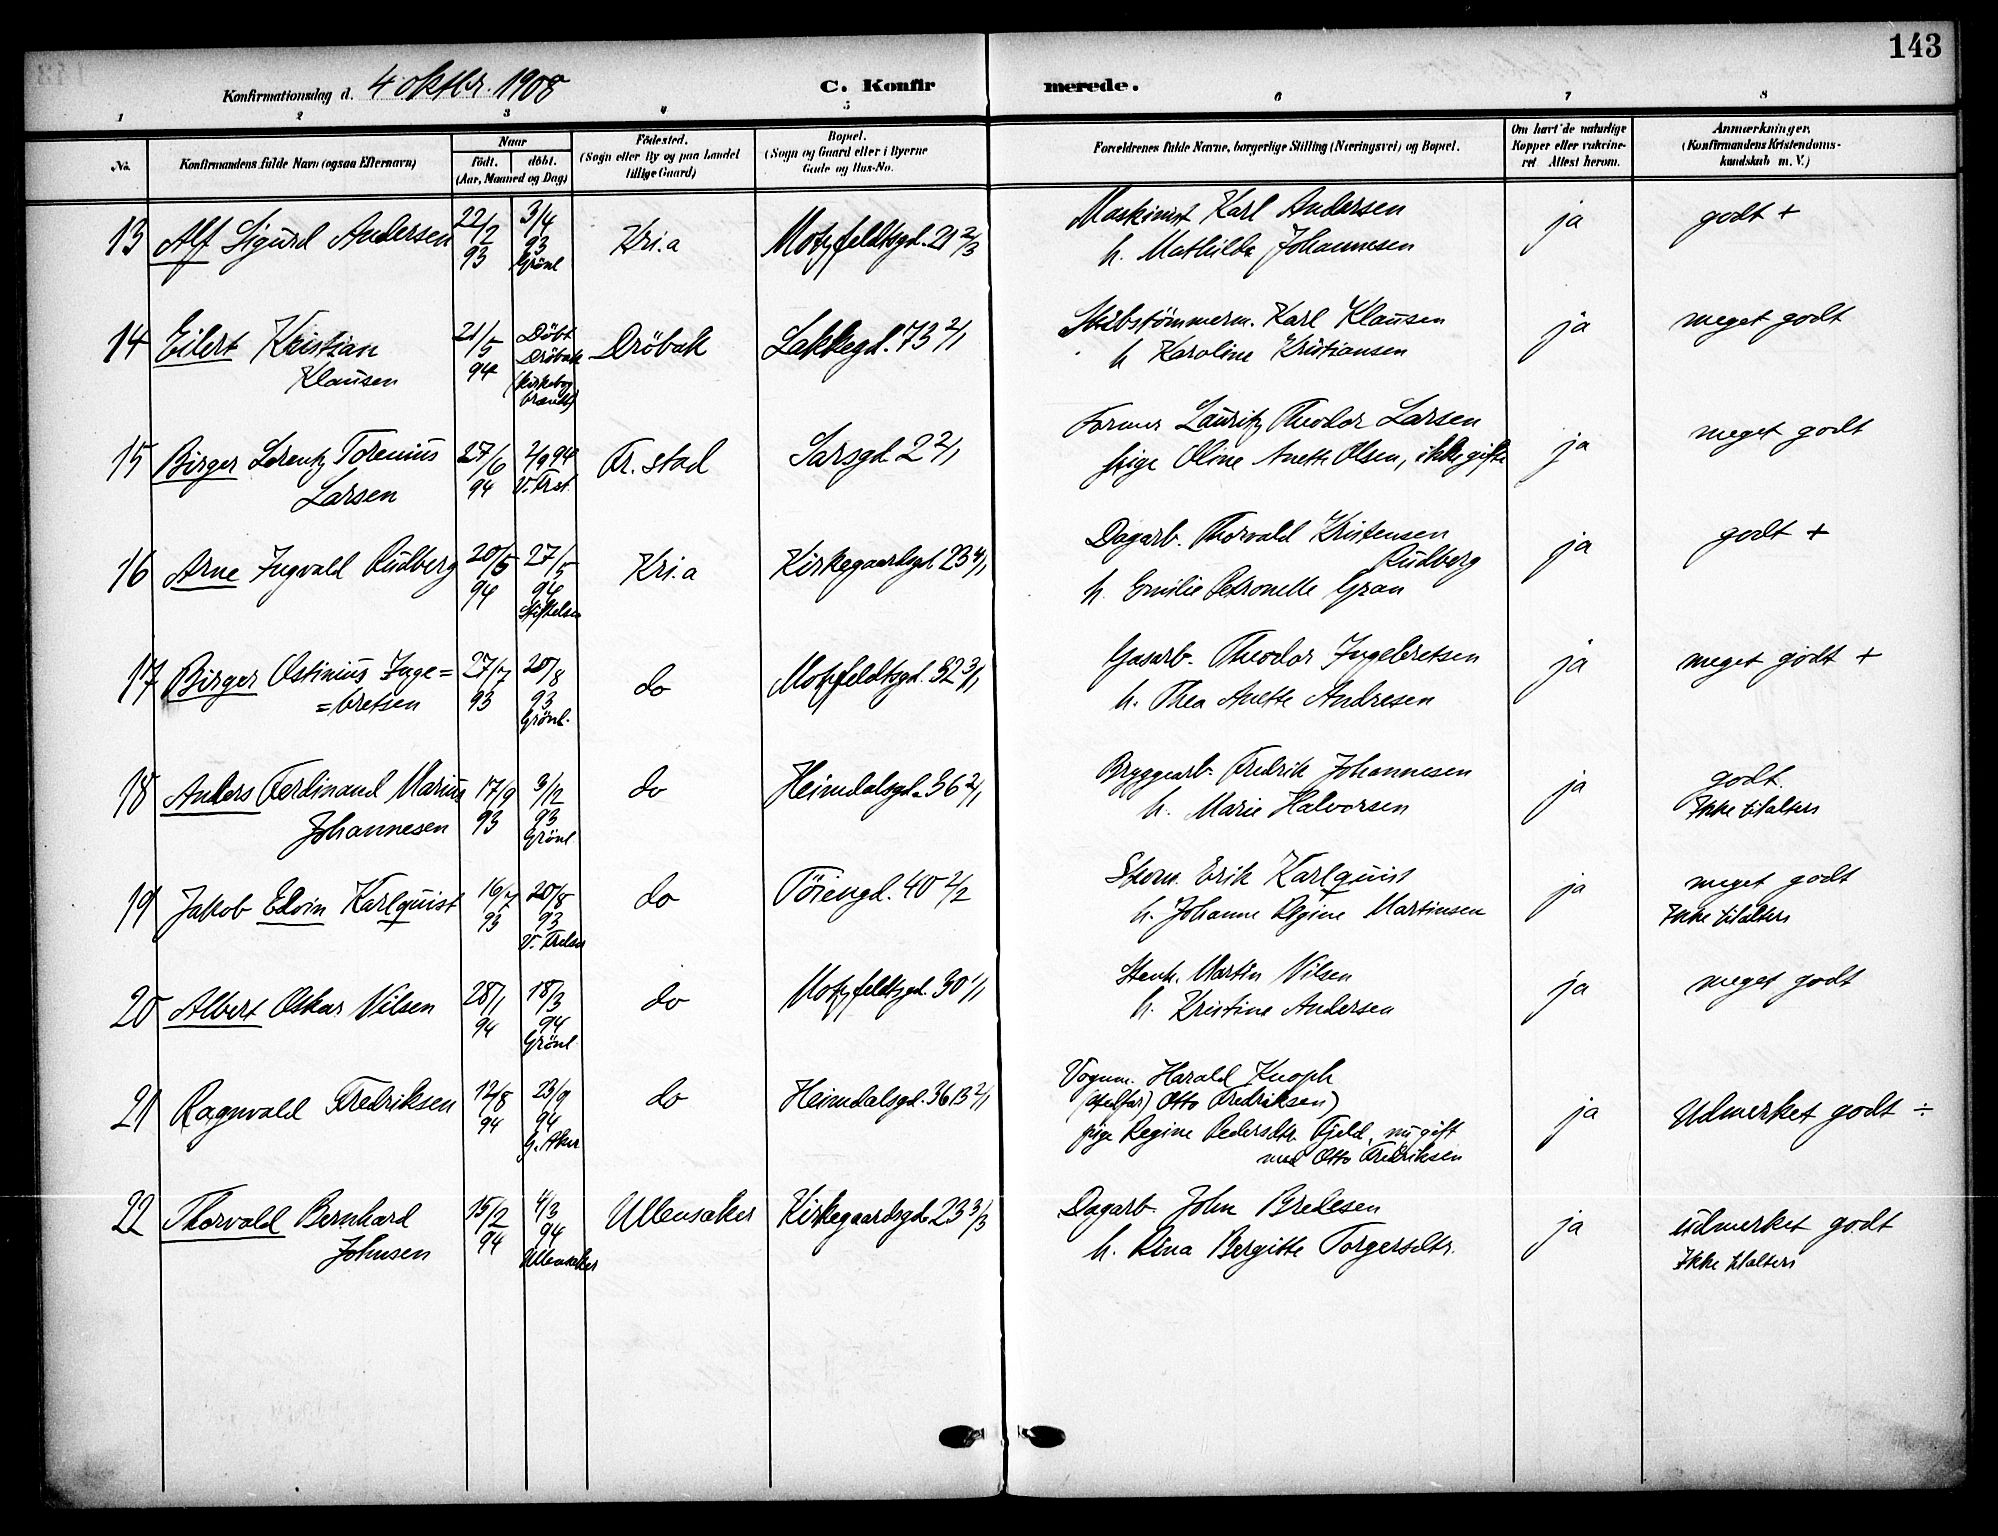 143
Konfirmationsdag d. 4 oktbr. 1908 C. Konfirmerede.
1 2 3 4 5 6 7 8
No. Konfirmandens fulde Navn (ogsaa Efternavn) Naar født. døbt. (Aar, Maaned og Dag) Fødested. (Sogn eller By og paa Landet tillige Gaard) Bopæl. (Sogn og Gaard eller i Byerne Gade og Hus-No. Forældrenes fulde Navne, borgerlige Stilling (Næringsvei) og Bopæl. Om havt de naturlige Kopper eller vakcineret Attest herom. Anmærkninger. (Konfirmandens Kristendomskundskab m. V.)
13 Alf Sigurd Andersen 22/2 93 3/4 93 Grönl Kri.a Motzfeldtsgd. 21 2/3 Maskinist Karl Andersen ja godt +
h. Mathilde Johannesen
14 Eilert Kristian 21/5 94 Döbt Dröbak (kirkebog brændt) Dröbak Lakkegd. 73 2/1 Skibstömmerm. Karl Klausen ja meget godt
Klausen h Karoline Kristiansen
15 Birger Lorentz Torenius 27/6 94 2/9 94 V. Frst. Fr. stad Sarsgd 2 2/1 Former Lauritz Theodor Larsen ja meget godt
Larsen pige Oline Anette Olsen, ikke gifte
16 Arne Ingvald Rudberg 20/5 94 27/5 94 Stiftelsen Kri.a Kirkegaardsgd. 23 4/1 Dagarb. Thorvald Kristensen ja godt +
Rudberg
h. Emilie Petronelle Gran
17 Birger Ostinius Inge= 27/7 93 20/8 93 Grönl. do Motzfeldtsgd. 32 3/1 Gasarb. Theodor Ingebretsen ja meget godt +
=bretsen h. Thea Anette Andresen
18 Anders Ferdinand Marius 17/9 93 3/12 93 Grönl do Heimdalsgd. 36 2/1 Bryggearb. Fredrik Johannesen ja godt.
Johannesen h. Marie Halvorsen Ikke tilalters
19 Jakob Edvin Karlquist 16/7 93 20/8 93 V. Frelser do Töiengd. 40 2/2 Erik Karlquist ja meget godt
h. Johanne Regine Martinsen Ikke tilalters
20 Albert Oskar Nilsen 28/1 94 18/3 94 Grönl do Motzfeldtsgd. 30 1/1 Stenh. Martin Nilsen ja meget godt
h. Kristine Andersen
21 Ragnvald Fredriksen 12/8 94 23/9 94 G. Aker do Heimdalsgd. 36 B 2/1 Vognm. Harald Knoph ja Udmerket godt ÷
(stedfar) Otto Fredriksen)
pige Regine Pedersdtr. Fjeld, nu gift
med Otto Fredriksen
22 Thorvald Bernhard 15/2 94 4/3 94 Ullensaker Ullensaker Kirkegaardsgd. 23 3/3 Dagarb. John Bredesen ja udmerket godt
Johnsen h. Lina Bergitte Torgersdtr. Ikke tilalters